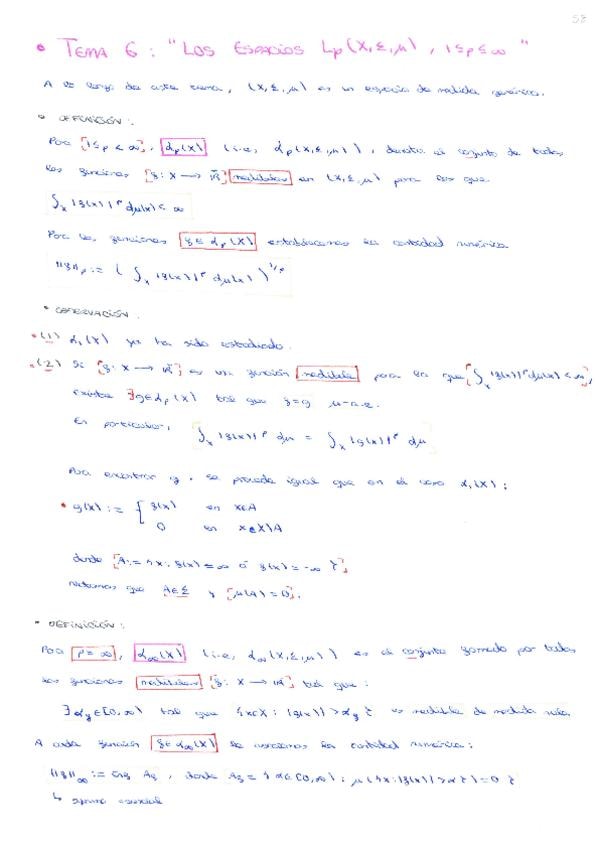 58
• TEMA 6 : "LOS ESPACIOS Lp (X, Σ, μ) , 1≤p≤∞ "
A lo largo de este tema, (X, Σ, μ) es un espacio de medida genérico.
• DEFINICIÓN :
Para [1≤p<∞], ℒp(X) (i.e, ℒp(X, Σ, μ)), denota el conjunto de todas
las funciones [f: X → ℝ] medibles en (X, Σ, μ) para las que
∫x |f(x)|^p dμ(x) < ∞
Para las funciones f∈ℒp(X) establecemos la cantidad numérica
||f||p := ( ∫x |f(x)|^p dμ(x) )^1/p
• OBSERVACIÓN :
• (1) ℒ1(X) ya ha sido estudiado.
• (2) Si [f: X → ℝ̄] es una función medible para la que [∫x |f(x)|^p dμ(x) < ∞],
existe ∃g∈ℒp(X) tal que f=g μ-a.e.
En particular, ∫x |f(x)|^p dμ = ∫x |g(x)|^p dμ
Para encontrar g, se procede igual que en el caso ℒ1(X) :
• g(x) := { f(x) en x∈A
0 en x∈X\A
donde [A:= {x: f(x) = ∞ ó f(x) = -∞ }],
notemos que A∈Σ y [μ(A) = 0].
• DEFINICIÓN :
Para p=∞, ℒ∞(X) (i.e, ℒ∞(X, Σ, μ)) es el conjunto formado por todas
las funciones medibles [f: X → ℝ] tal que :
∃ αf∈[0,∞) tal que {x∈X : |f(x)| > αf } es medible de medida nula.
A cada función f∈ℒ∞(X) le asociamos la cantidad numérica :
||f||∞ := inf Af , donde Af = { α∈[0,∞) : μ({x: |f(x)| > α}) = 0 }
↳ supremo esencial